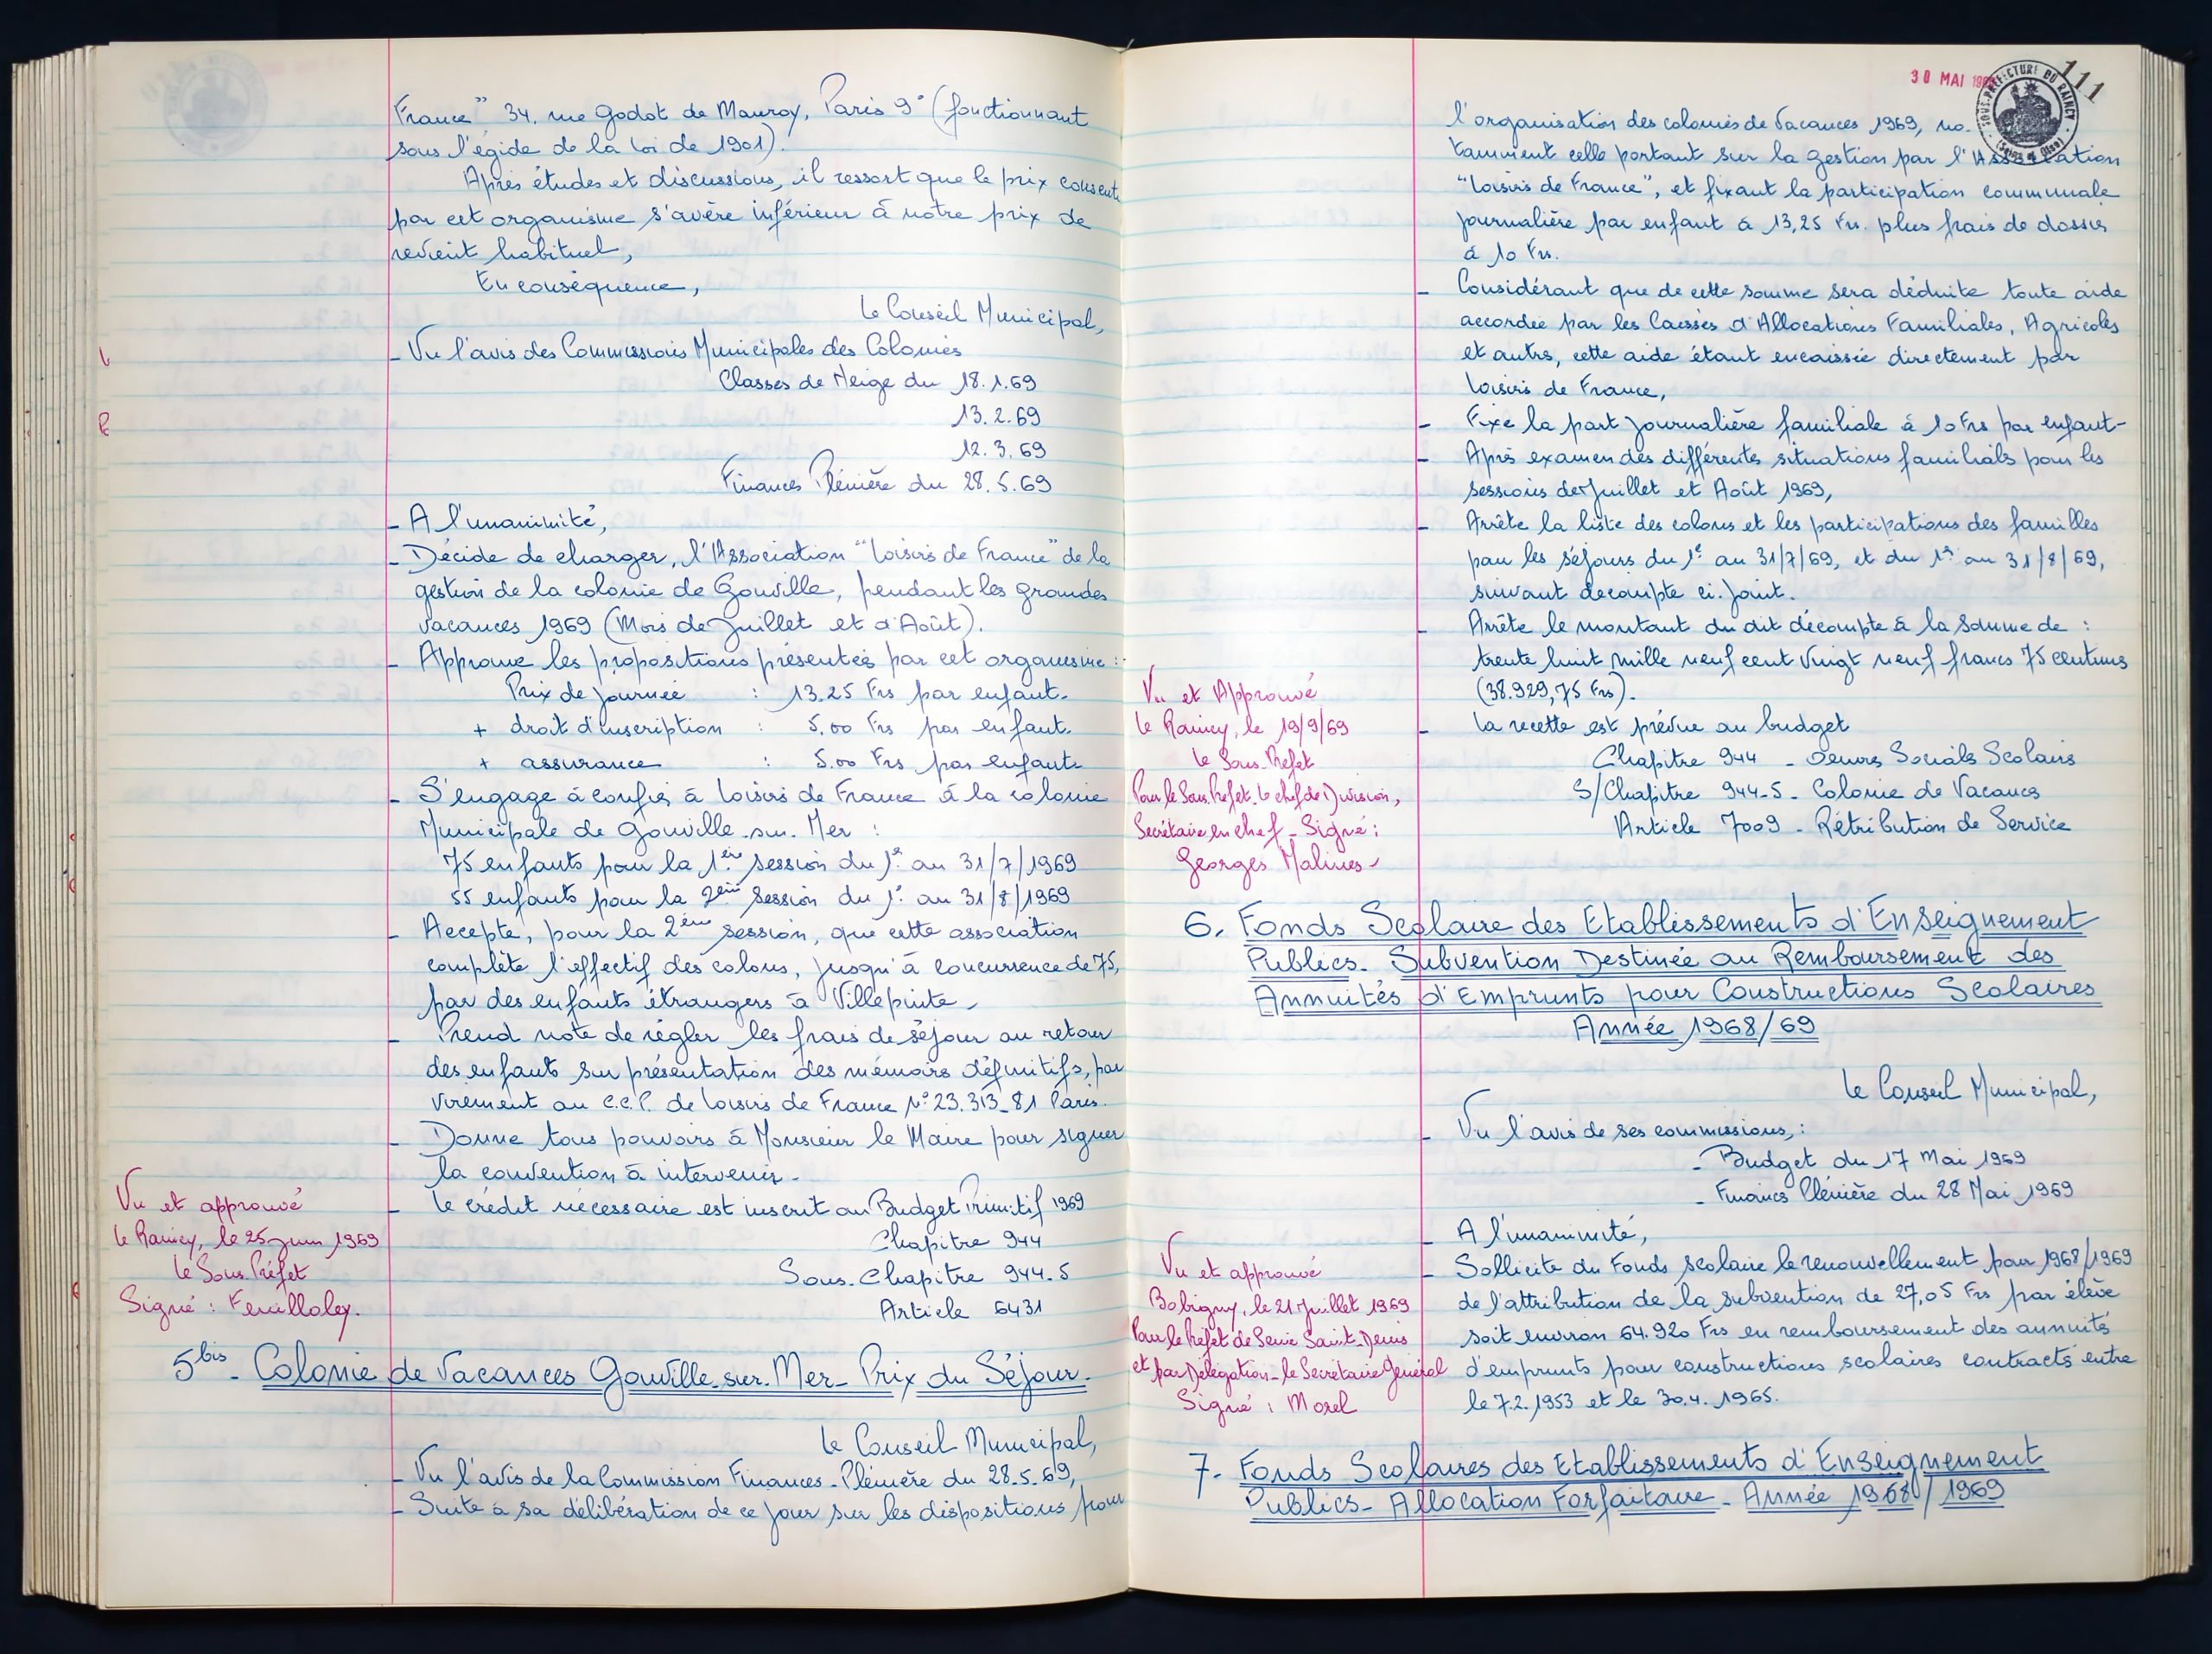 France" 34, rue Godot de Mauroy, Paris 9° (fonctionnant
sous l'égide de la loi de 1901).
Après études et discussions, il ressort que le prix consenti
par cet organisme s'avère inférieur à notre prix de
revient habituel,
En conséquence,
Le Conseil Municipal,
- Vu l'avis des Commissions Municipales des Colonies
Classes de Neige du 18.1.69
13.2.69
12.3.69
Finances Plénière du 28.5.69
- A l'unanimité,
- Décide de charger, l'Association "Loisirs de France" de la
gestion de la colonie de Gouville, pendant les grandes
vacances 1969 (Mois de Juillet et d'Août).
- Approuve les propositions présentées par cet organisme :
Prix de journée : 13.25 Frs par enfant.
+ droit d'inscription : 5.00 Frs par enfant.
+ assurance : 5.00 Frs par enfant
- S'engage à confier à Loisirs de France à la colonie
Municipale de Gouville-sur-Mer :
75 enfants pour la 1ère session du 1er au 31/7/1969
55 enfants pour la 2ème session du 1er au 31/8/1969
- Accepte, pour la 2ème session, que cette association
complète l'effectif des colons, jusqu'à concurrence de 75,
par des enfants étrangers à Villepinte -
- Prend note de régler les frais de séjour au retour
des enfants sur présentation des mémoires définitifs, par
virement au C.C.P. de Loisirs de France N° 23.313-81 Paris.
- Donne tous pouvoirs à Monsieur le Maire pour signer
la convention à intervenir -
- Le crédit nécessaire est inscrit au Budget Primitif 1969
Chapitre 944
Sous-Chapitre 944-5
Article 6431
Vu et approuvé
Le Raincy, le 25 Juin 1969
Le Sous-Préfet
Signé : Feuilloley.
5bis - Colonie de Vacances Gouville-sur-Mer - Prix du Séjour.
Le Conseil Municipal,
- Vu l'avis de la Commission Finances-Plénière du 28.5.69,
- Suite à sa délibération de ce jour sur les dispositions pour
30 MAI
SOUS-PRÉFECTURE DU RAINCY
(Seine et Oise)
111
l'organisation des colonies de Vacances 1969, no-
tamment celle portant sur la gestion par l'Association
"Loisirs de France", et fixant la participation communale
journalière par enfant à 13,25 Frs. plus frais de dossier
à 10 Frs.
- Considérant que de cette somme sera déduite toute aide
accordée par les Caisses d'Allocations Familiales, Agricoles
et autres, cette aide étant encaissée directement par
Loisirs de France,
- Fixe la part journalière familiale à 10 Frs par enfant-
- Après examen des différentes situations familiales pour les
sessions de Juillet et Août 1969,
- Arrête la liste des colons et les participations des familles
pour les séjours du 1er au 31/7/69, et du 1er au 31/8/69,
suivant décompte ci-joint.
- Arrête le montant du dit décompte à la somme de :
trente huit mille neuf cent vingt neuf francs 75 centimes
(38.929,75 Frs).
- La recette est prévue au budget
Chapitre 944 - Oeuvres Sociales Scolaires
S/Chapitre 944-5 - Colonie de Vacances
Article 7009 - Rétribution de Service
Vu et Approuvé
Le Raincy, le 19/9/69
Le Sous-Préfet
Pour le Sous-Préfet. Le chef de Division,
Secrétaire en chef - Signé :
Georges Malines-
6. Fonds Scolaire des Etablissements d'Enseignement
Publics - Subvention Destinée au Remboursement des
Annuités d'Emprunts pour Constructions Scolaires
Année 1968/69
Le Conseil Municipal,
- Vu l'avis de ses commissions, :
- Budget du 17 Mai 1969
- Finances Plénière du 28 Mai 1969
- A l'unanimité,
- Sollicite du Fonds scolaire le renouvellement pour 1968/1969
de l'attribution de la subvention de 27,05 Frs par élève
soit environ 64.920 Frs en remboursement des annuités
d'emprunts pour constructions scolaires contractés entre
le 7.2.1953 et le 30.4.1965.
Vu et approuvé
Bobigny, le 21 Juillet 1969
Pour le Préfet de Seine Saint-Denis
et par Délégation - le Secrétaire Général
Signé : Morel
7. Fonds Scolaires des Etablissements d'Enseignement
Publics - Allocation Forfaitaire - Année 1968/1969